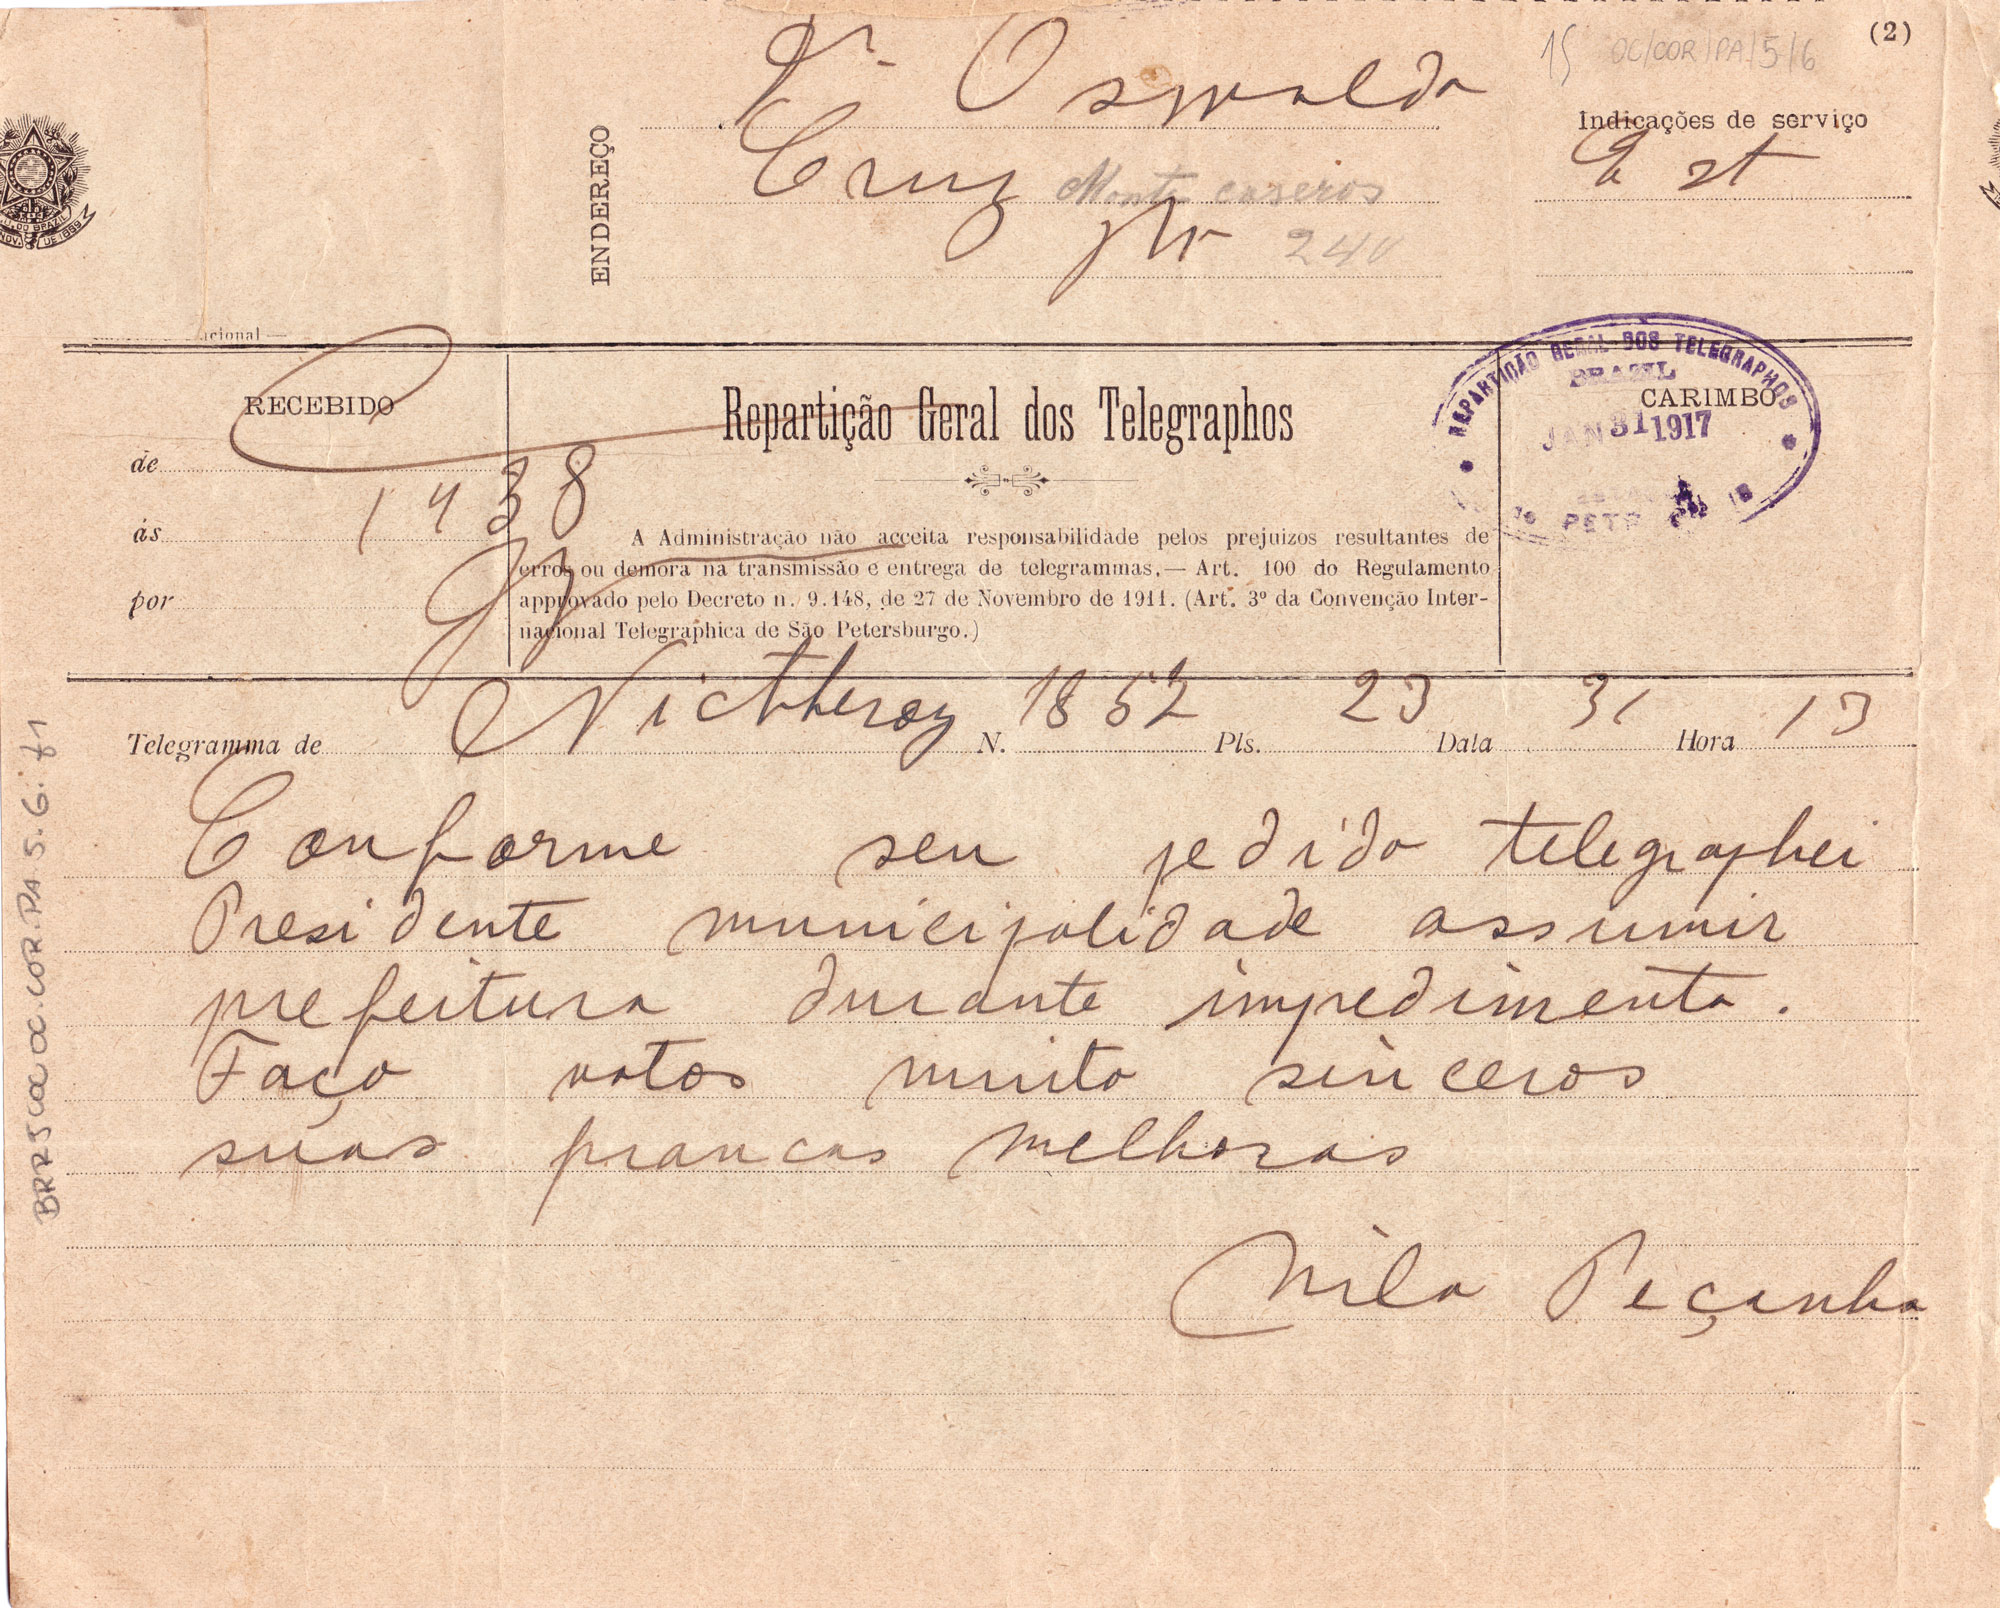 (2)
15 OC/COR/PA/5/6
Dr Oswaldo
Cruz Monte caseros
240
ENDEREÇO
Indicações de serviço
DO BRAZIL
NOV. DE 1889
cional
RECEBIDO
de
ás 1438
por
Repartição Geral dos Telegraphos
A Administração não acceita responsabilidade pelos prejuizos resultantes de
erros ou demora na transmissão e entrega de telegrammas.— Art. 100 do Regulamento
approvado pelo Decreto n. 9.148, de 27 de Novembro de 1911. (Art. 3º da Convenção Inter-
nacional Telegraphica de São Petersburgo.)
CARIMBO
REPARTIÇÃO GERAL DOS TELEGRAPHOS
BRAZIL
JAN 31 1917
PETR
Telegramma de Nictheroy N. 1852 Pls. 23 Data 31 Hora 13
Conforme seu pedido telegraphei
Presidente municipalidade assumir
prefeitura durante impedimento.
Faço votos muito sinceros
suas francas melhoras
Nilo Peçanha
BR RJ COC OC.COR.PA.5.6.f1